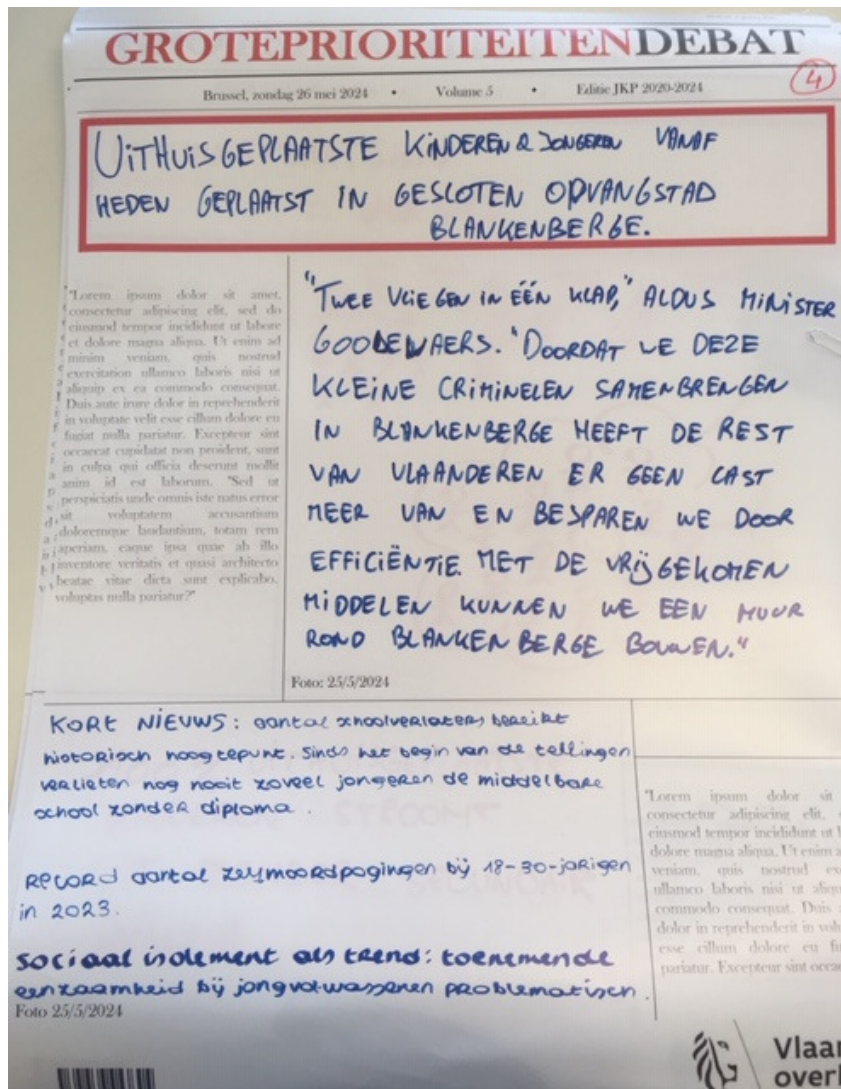 GROTEPRIORITEITENDEBAT
Brussel, zondag 26 mei 2024 • Volume 5 • Editie JKP 2020-2024
4
UITHUISGEPLAATSTE KINDEREN & JONGEREN VANAF
HEDEN GEPLAATST IN GESLOTEN OPVANGSTAD
BLANKENBERGE.
"Lorem ipsum dolor sit amet,
consectetur adipiscing elit, sed do
eiusmod tempor incididunt ut labore
et dolore magna aliqua. Ut enim ad
minim veniam, quis nostrud
exercitation ullamco laboris nisi ut
aliquip ex ea commodo consequat.
Duis aute irure dolor in reprehenderit
in voluptate velit esse cillum dolore eu
fugiat nulla pariatur. Excepteur sint
occaecat cupidatat non proident, sunt
in culpa qui officia deserunt mollit
anim id est laborum. "Sed ut
perspiciatis unde omnis iste natus error
sit voluptatem accusantium
doloremque laudantium, totam rem
aperiam, eaque ipsa quae ab illo
inventore veritatis et quasi architecto
beatae vitae dicta sunt explicabo.
voluptas nulla pariatur?"
"TWEE VLIEGEN IN ÉÉN KLAP," ALDUS MINISTER
GOODEWAERS. "DOORDAT WE DEZE
KLEINE CRIMINELEN SAMENBRENGEN
IN BLANKENBERGE HEEFT DE REST
VAN VLAANDEREN ER GEEN LAST
MEER VAN EN BESPAREN WE DOOR
EFFICIËNTIE. MET DE VRIJGEKOMEN
MIDDELEN KUNNEN WE EEN MUUR
ROND BLANKENBERGE BOUWEN."
Foto: 25/5/2024
KORT NIEUWS: aantal schoolverlaters bereikt
historisch hoogtepunt. Sinds het begin van de tellingen
verlieten nog nooit zoveel jongeren de middelbare
school zonder diploma.
RECORD aantal zelfmoordpogingen bij 18-30-jarigen
in 2023.
Sociaal isolement als trend: toenemende
eenzaamheid bij jongvolwassenen problematisch.
Foto 25/5/2024
"Lorem ipsum dolor sit
consectetur adipiscing elit,
eiusmod tempor incididunt ut
dolore magna aliqua. Ut enim
veniam, quis nostrud
ullamco laboris nisi ut
commodo consequat. Duis
dolor in reprehenderit in
esse cillum dolore eu
pariatur. Excepteur sint
Vlaa
over